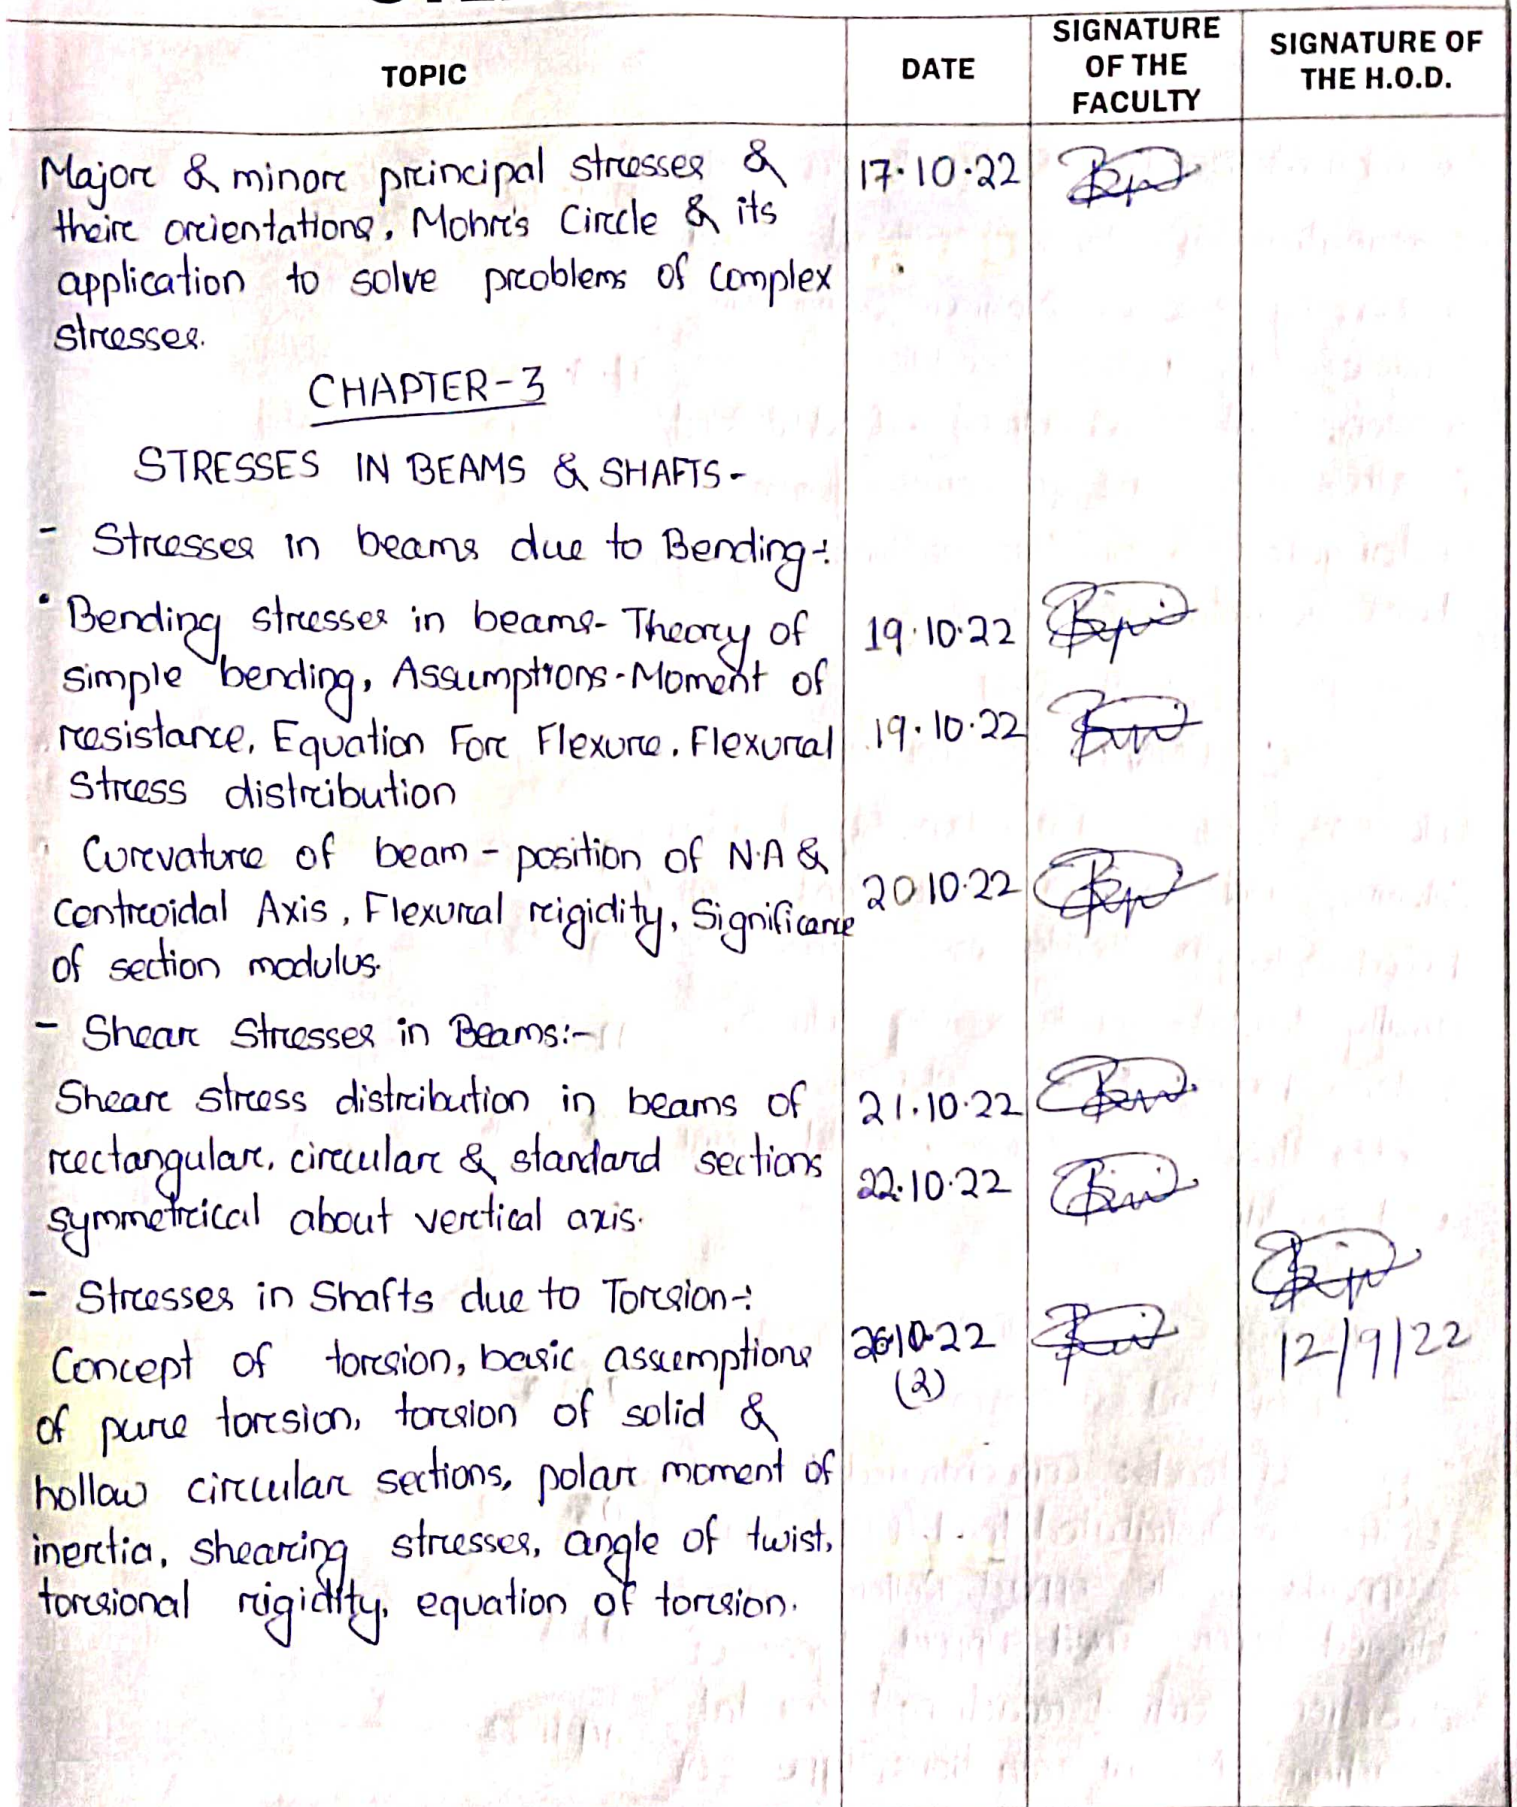 TOPIC DATE SIGNATURE OF THE FACULTY SIGNATURE OF THE H.O.D.
Major & minor principal stresses & 17.10.22
their orientations, Mohr's Circle & its
application to solve problems of complex
stresses.
CHAPTER-3
STRESSES IN BEAMS & SHAFTS-
- Stresses in beams due to Bending-:
• Bending stresses in beams- Theory of 19.10.22
simple bending, Assumptions-Moment of
resistance, Equation For Flexure. Flexural 19.10.22
Stress distribution
Curvature of beam - position of N.A &
Centroidal Axis, Flexural rigidity, Significance 20 10.22
of section modulus.
- Shear Stresses in Beams:-
Shear stress distribution in beams of 21.10.22
rectangular, circular & standard sections 22.10.22
symmetrical about vertical axis.
- Stresses in Shafts due to Torsion-:
Concept of torsion, basic assumptions 10.22 12/9/22
of pure torsion, torsion of solid & (2)
hollow circular sections, polar moment of
inertia, shearing stresses, angle of twist,
torsional rigidity, equation of torsion.